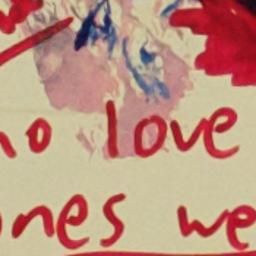 no love
ones we